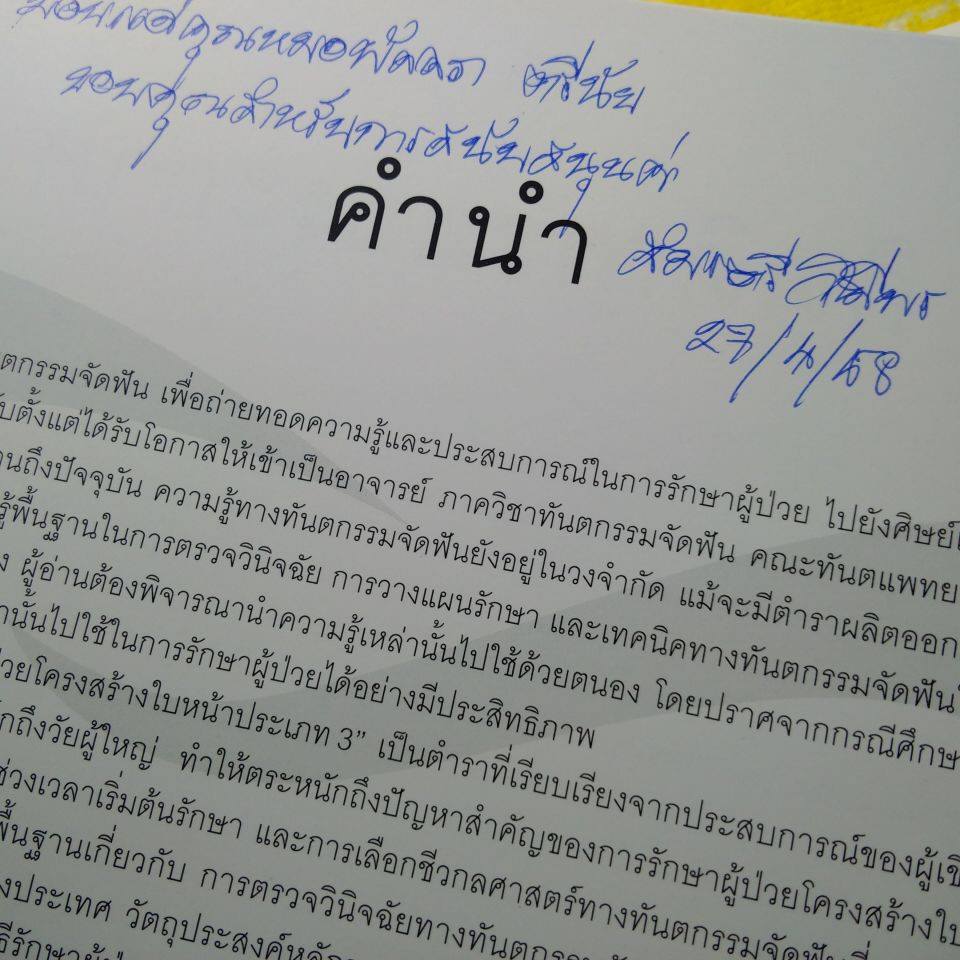 มอบแด่คุณหมอพัคครา ตรีนัย
ขอบคุณสำหรับการสนับสนุนค่ะ
คำนำ
27/4/58
ตกรรมจัดฟัน เพื่อถ่ายทอดความรู้และประสบการณ์ในการรักษาผู้ป่วย ไปยังศิษย์
ตั้งแต่ได้รับโอกาสให้เข้าเป็นอาจารย์ ภาควิชาทันตกรรมจัดฟัน คณะทันตแพทย
ถึงปัจจุบัน ความรู้ทางทันตกรรมจัดฟันยังอยู่ในวงจำกัด แม้จะมีตำราผลิตออก
รู้พื้นฐานในการตรวจวินิจฉัย การวางแผนรักษา และเทคนิคทางทันตกรรมจัดฟัน
ง ผู้อ่านต้องพิจารณานำความรู้เหล่านั้นไปใช้ด้วยตนเอง โดยปราศจากกรณีศึกษ
านั้นไปใช้ในการรักษาผู้ป่วยได้อย่างมีประสิทธิภาพ
ป่วยโครงสร้างใบหน้าประเภท 3” เป็นตำราที่เรียบเรียงจากประสบการณ์ของผู้เขี
กถึงวัยผู้ใหญ่ ทำให้ตระหนักถึงปัญหาสำคัญของการรักษาผู้ป่วยโครงสร้างใบ
ช่วงเวลาเริ่มต้นรักษา และการเลือกชีวกลศาสตร์ทางทันตกรรมจัดฟันที่
พื้นฐานเกี่ยวกับ การตรวจวินิจฉัยทางทันตกรรม
งประเทศ วัตถุประสงค์หลัก
ธีรักษาผู้ป่